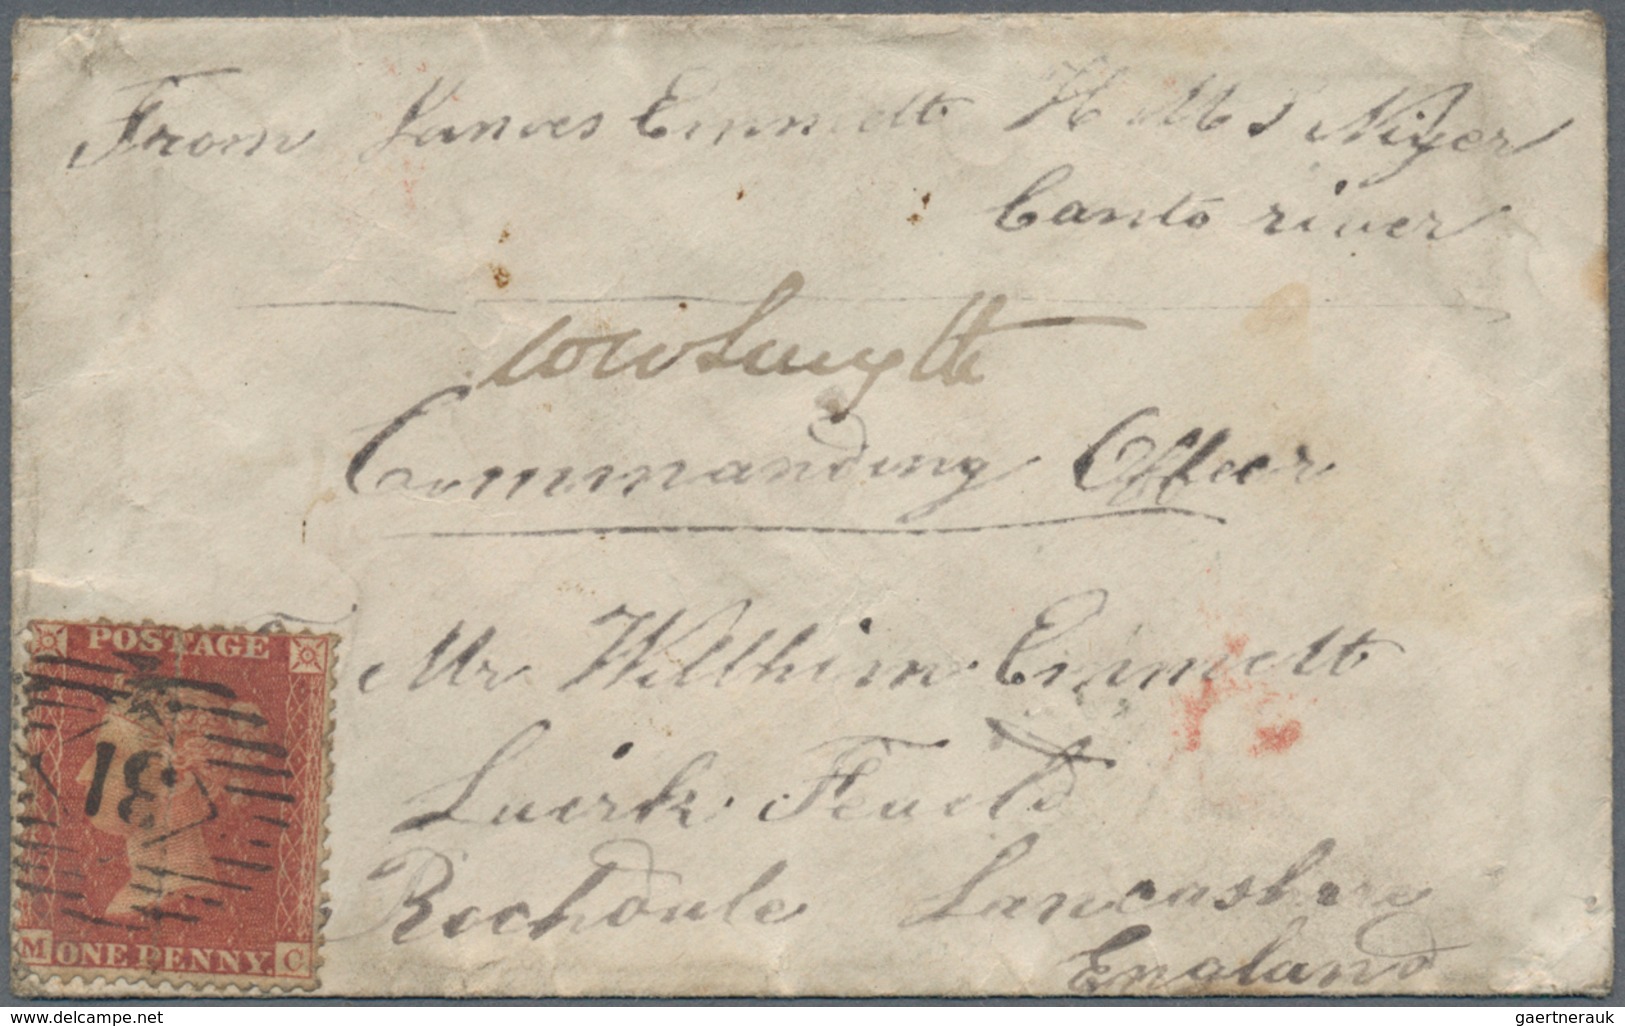 From James Emmett H M S Niger
Canto river
Commanding Officer
Mr Willhim Emmett
Lwerk Feueld
Rochdale Lancashire
England
POSTAGE
18
M ONE PENNY. C
www.delcampe.net
gaertnerauk